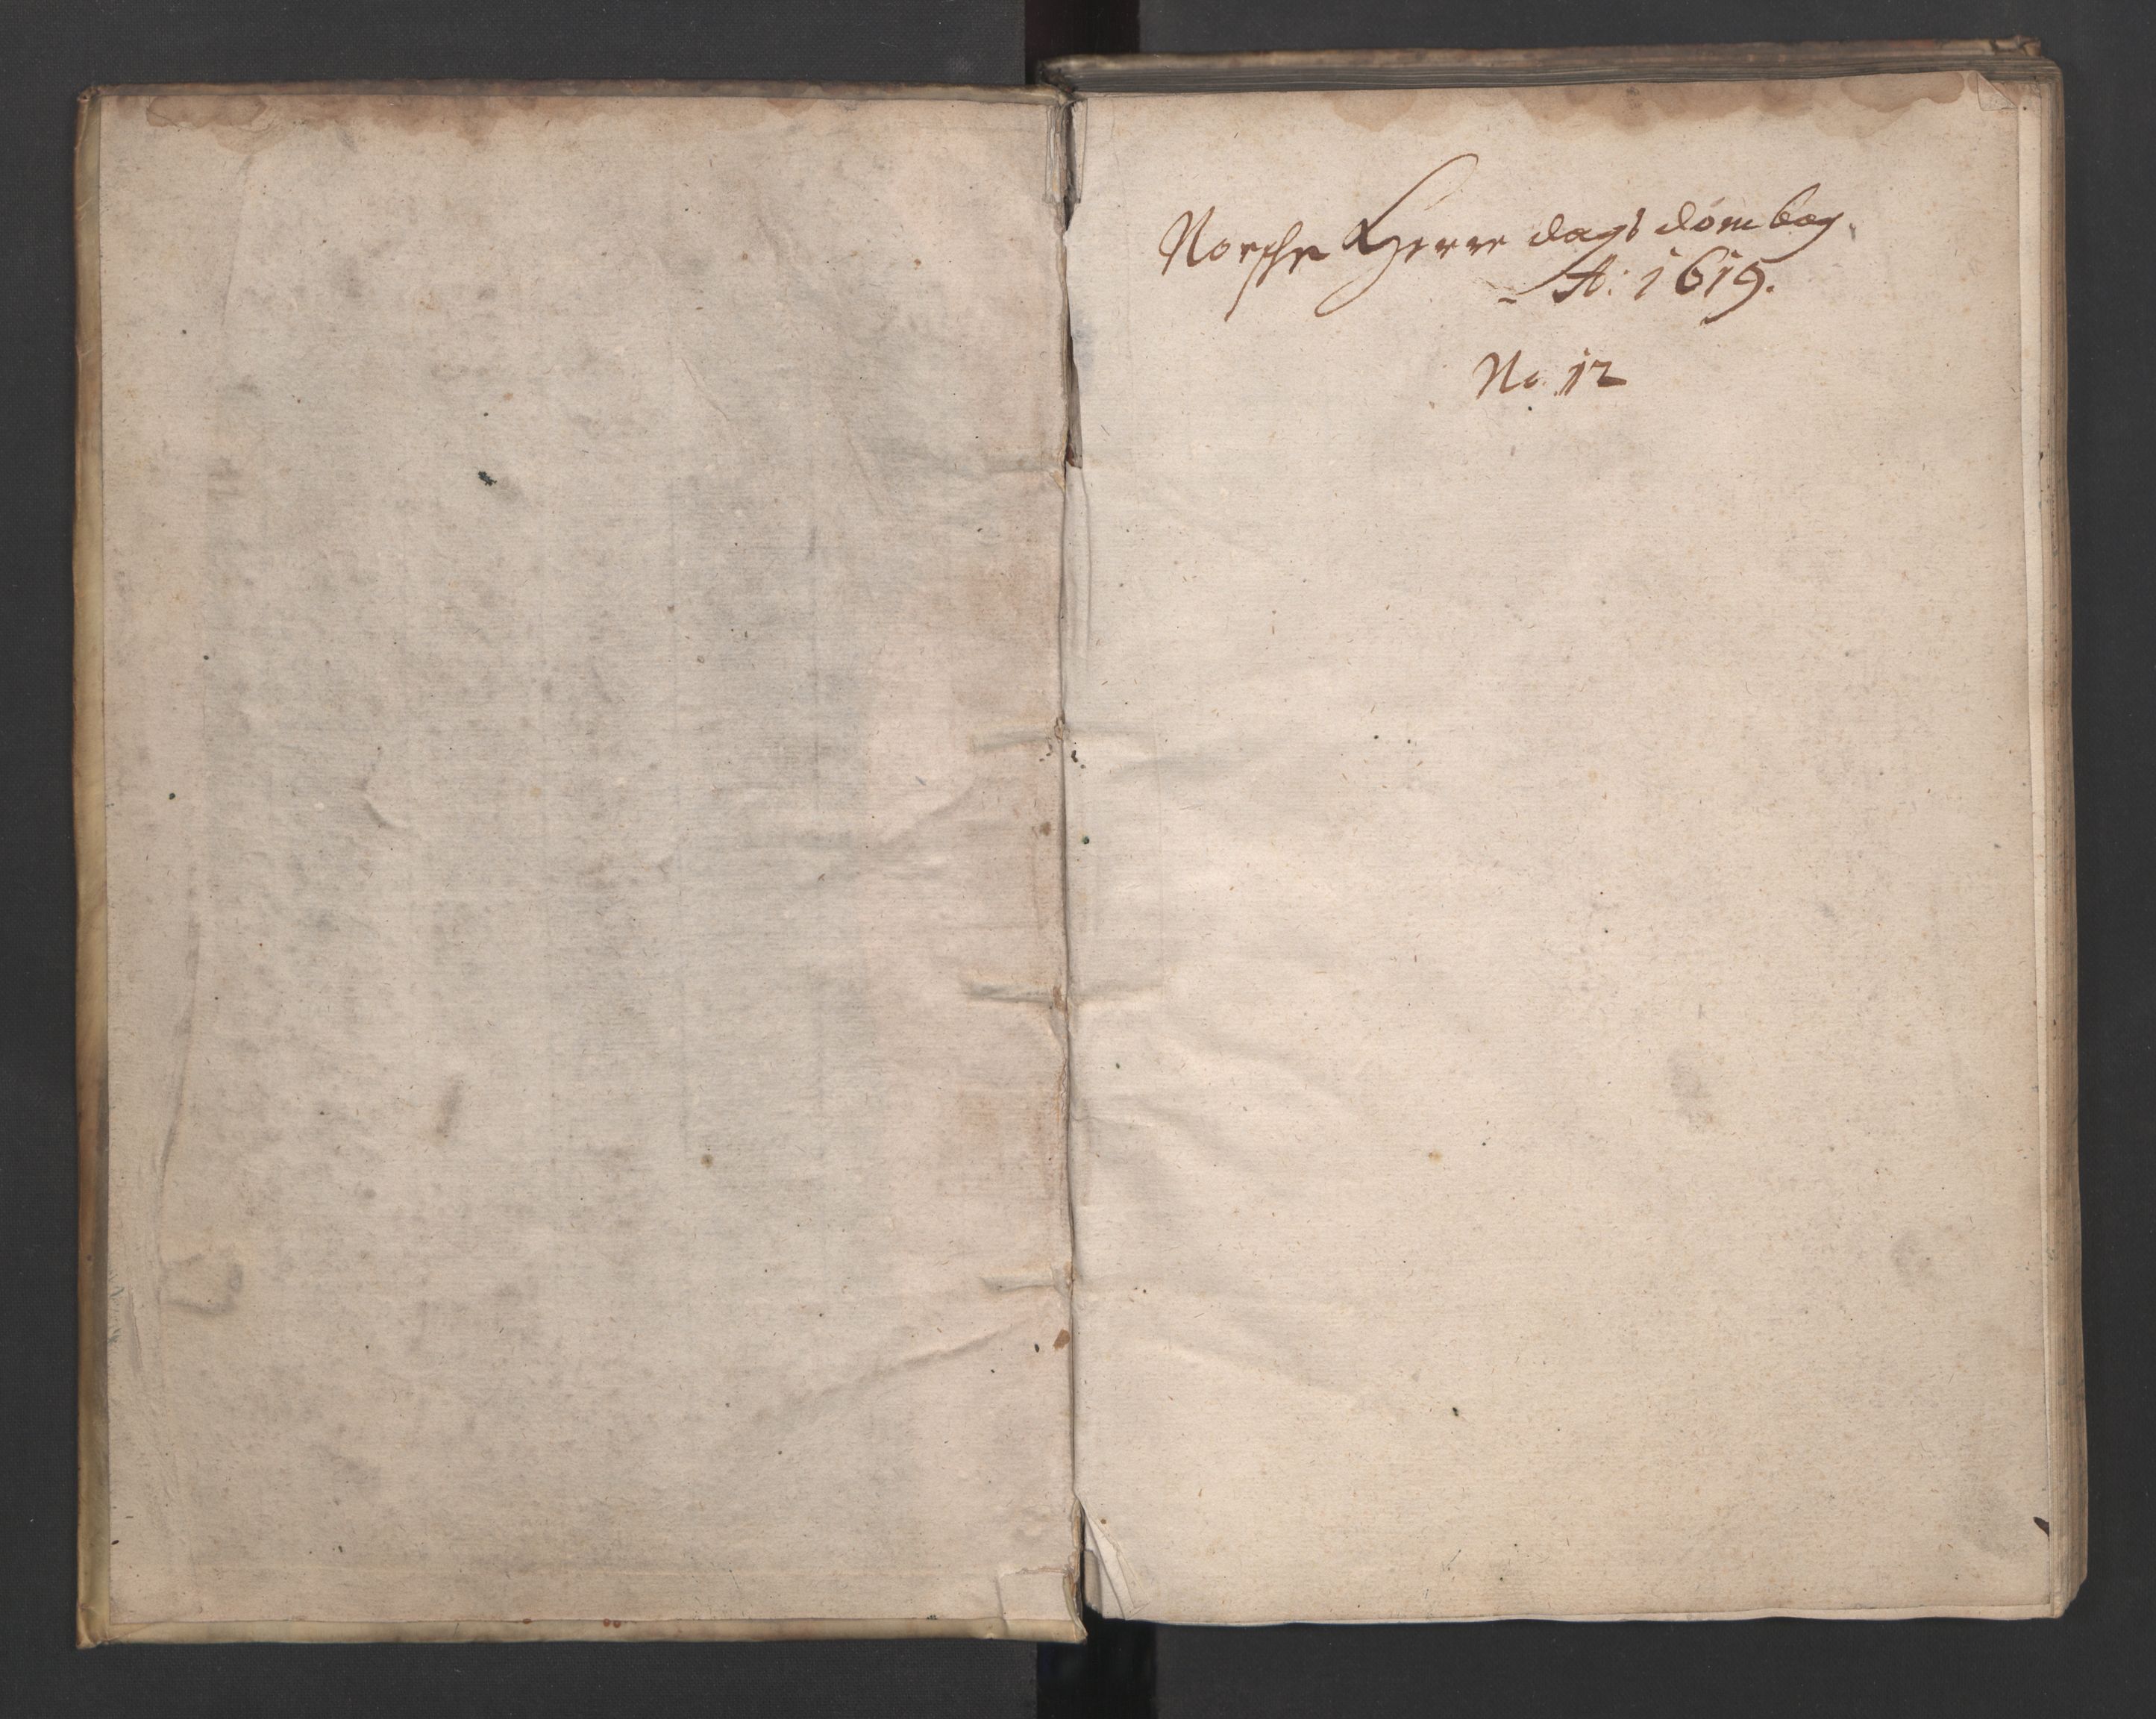 Norsche Herre dags dombog.
A: 1619.
No. 12